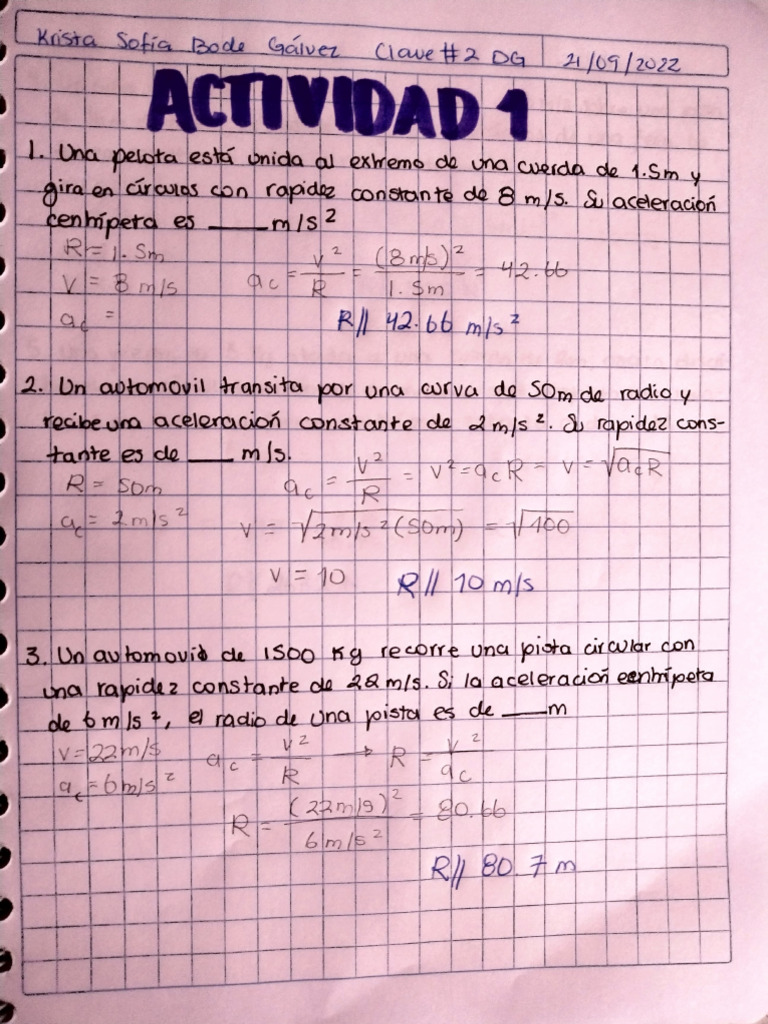 Krista Sofía Bode Gálvez Clave #2 DG 21/09/2022
ACTIVIDAD 1
1. Una pelota está unida al extremo de una cuerda de 1.5m y
gira en círculos con rapidez constante de 8 m/s. Su aceleración
centrípeta es ____ m/s²
R = 1.5m
V = 8 m/s
ac =
ac = v²/R = (8m/s)²/1.5m = 42.66
R// 42.66 m/s²
2. Un automovil transita por una curva de 50m de radio y
recibe una aceleración constante de 2m/s². Su rapidez cons-
tante es de ____ m/s.
R = 50m
ac = 2m/s²
ac = v²/R = v² = ac R = v = √ac R
v = √2m/s² (50m) = √100
v = 10
R// 10 m/s
3. Un automovil de 1500 Kg recorre una pista circular con
una rapidez constante de 22 m/s. Si la aceleración centrípeta
de 6 m/s², el radio de una pista es de ____ m
v = 22m/s
ac = 6m/s²
ac = v²/R → R = v²/ac
R = (22m/s)²/6 m/s² = 80.66
R// 80.7 m